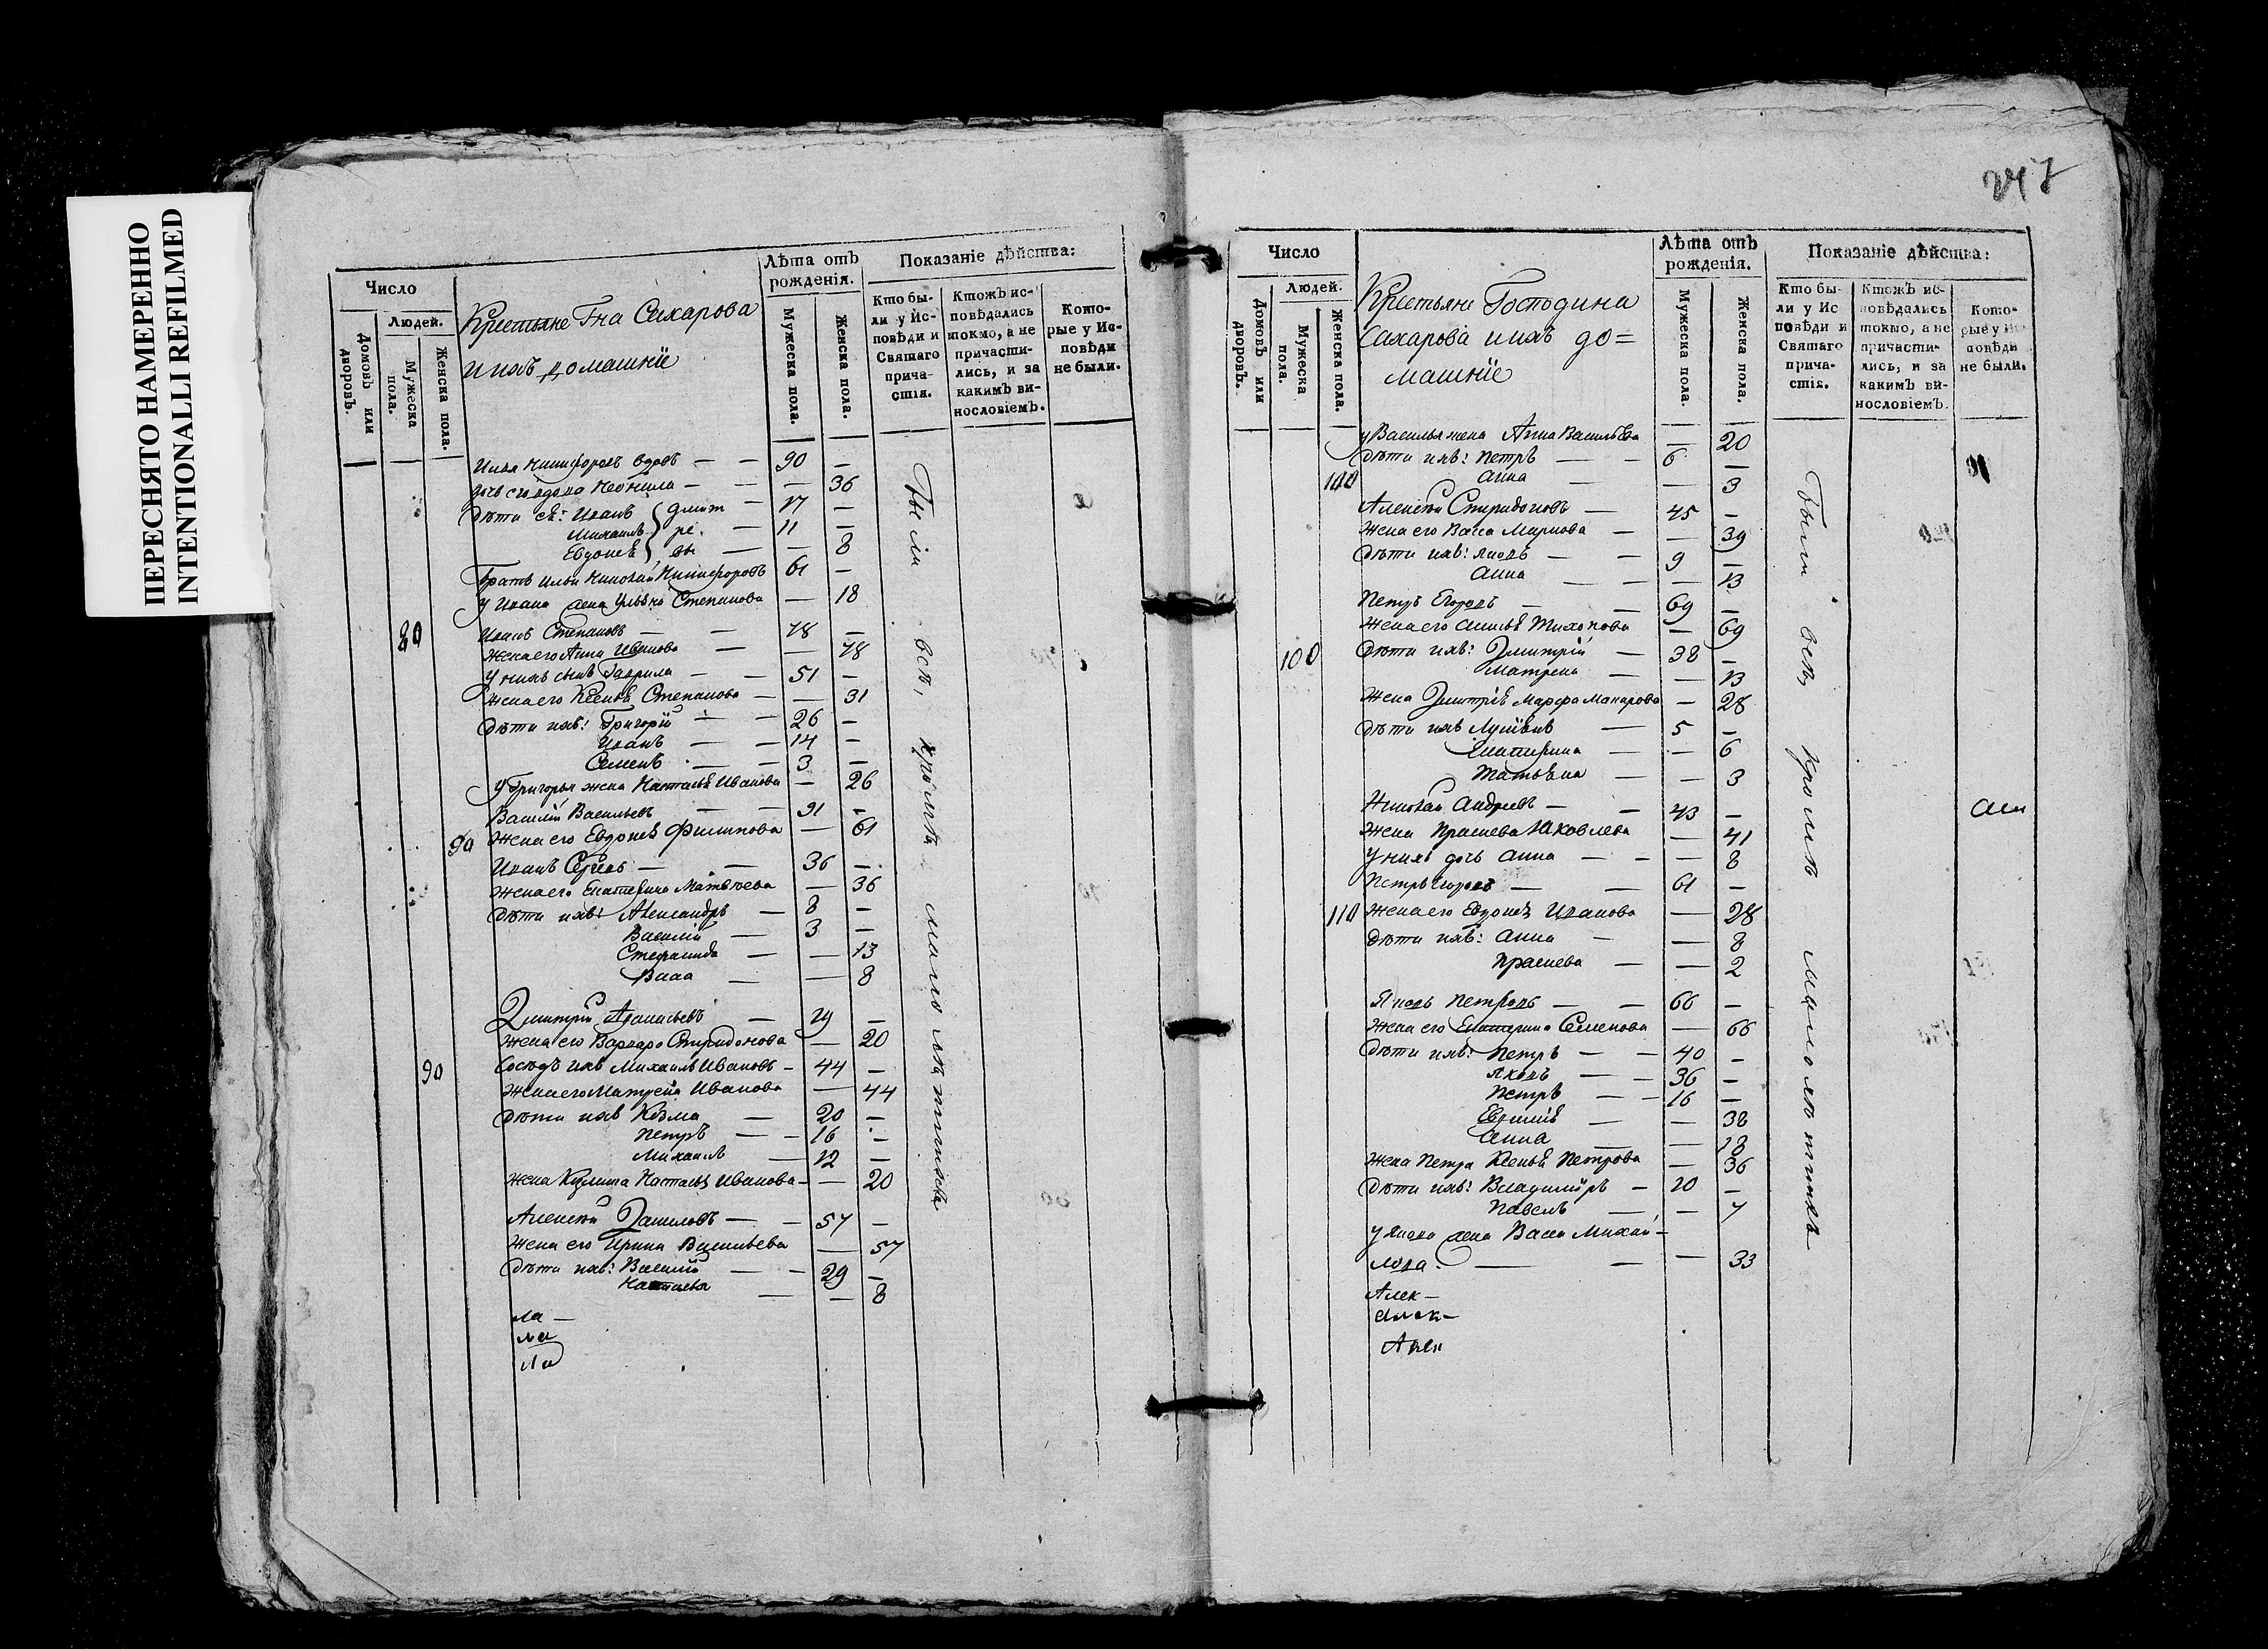 ПЕРЕСНЯТО НАМЕРЕННО
INTENTIONALLI REFILMED
Число
Людей.
Домовъ или дворовъ.
Мужеска пола.
Женска пола.
Крестьяне Гна Сахарова
и ихъ домашніе
Лѣта отъ рожденія.
Мужеска пола.
Женска пола.
Показаніе дѣйства:
Кто бы-
ли у Ис-
повѣди и
Святаго
прича-
стія.
Ктожъ ис-
повѣдались
токмо, а не
причасти-
лись, и за
какимъ ви-
нословіемъ.
Кото-
рые у Ис-
повѣди
не были.
Илья Никифоровъ вдовъ — — 90 —
дочь его вдова Неонила — — — 36
Дѣти ея: Иванъ 17 —
Михаилъ 11 —
— 8
Братъ Ильи Николай Никифоровъ 61 —
У Ивана жена Ульяна Степанова — 18
80 Иванъ Степановъ — — 78 —
Жена его Анна Иванова — — 78
У нихъ сынъ Гаврила — — 51 —
Жена его Ксенья Степанова — — 31
Дѣти ихъ: Григорій — — 26 —
Иванъ — — 14 —
Семенъ — — 3 —
У Григорья жена Настасья Иванова — 26
Василій Васильевъ — — 91 —
90 Жена его Евдокея Филипова — 61
Иванъ — — 36 —
Жена его Екатерина Матвѣева — 36
Дѣти ихъ: Александръ — 8 —
Василій — 3 —
Стефанида — — 13
Васса — — 8
Дмитрій Афанасьевъ — 29 —
Жена его Варвара Спиридонова — 20
90 Сосѣдъ ихъ Михаилъ Ивановъ — 44 —
Жена его Матрена Иванова — 44
Дѣти ихъ Козма — 20 —
Петръ — — 16 —
Михаилъ — 12 —
Жена Козмина Настасья Иванова — — 20
Алексѣй Даниловъ — — 57 —
Жена его Ирина Васильева — 57
Дѣти ихъ: Василій — — 29 —
Наталья — — 8
ла —
ла
ла
Были всѣ, кромѣ малолѣтныхъ
247
Число
Людей.
Домовъ или дворовъ.
Мужеска пола.
Женска пола.
Крестьяне Господина
Сахарова и ихъ до=
машніе
Лѣта отъ рожденія.
Мужеска пола.
Женска пола.
Показаніе дѣйства:
Кто бы-
ли у Ис
повѣди и
Святаго
прича-
стія.
Ктожъ ис-
повѣдались
токмо, а не
причасти-
лись, и за
какимъ ви-
нословіемъ.
Кото-
рые у Ис-
повѣди
не были.
у Василья жена Анна Васильева — 20
Дѣти ихъ: Петръ — — 6 —
100 Анна — — 3
Алексѣй Спиридоновъ — 45 —
Жена его Васса Маркова — — 39
Дѣти ихъ: Яковъ — — 9 —
Анна — — — 13
Петръ Егоровъ — — 69 —
Жена его Тихонова — 69
100 Дѣти ихъ: Дмитрій — 38 —
Матрена — — 13
Жена Дмитрія Марфа Макарова — 28
Дѣти ихъ — 5 —
Екатерина — — 6
Татьяна — — 3
Николай Андреевъ — — 43 —
Жена Прасковья Яковлева — 41
У нихъ дочь Анна — — — 8
Петръ Егоровъ — — 61 —
110 Жена его Евдокея Иванова — 28
Дѣти ихъ: Анна — — 8
Прасковья — — 2
Яковъ Петровъ — — 66 —
Жена его Екатерина Семенова — 66
Дѣти ихъ: Петръ — — 40 —
Яковъ — — 36 —
Петръ — — 16 —
— — 38
Анна — — 18
Жена Петра Ксенья Петрова — 36
Дѣти ихъ: Владимиръ — 10 —
Павелъ — — 7
У Якова жена Васса Михай —
лова — — — 33
Алек —
Алек —
Алек
Были всѣ, кромѣ малолѣтныхъ